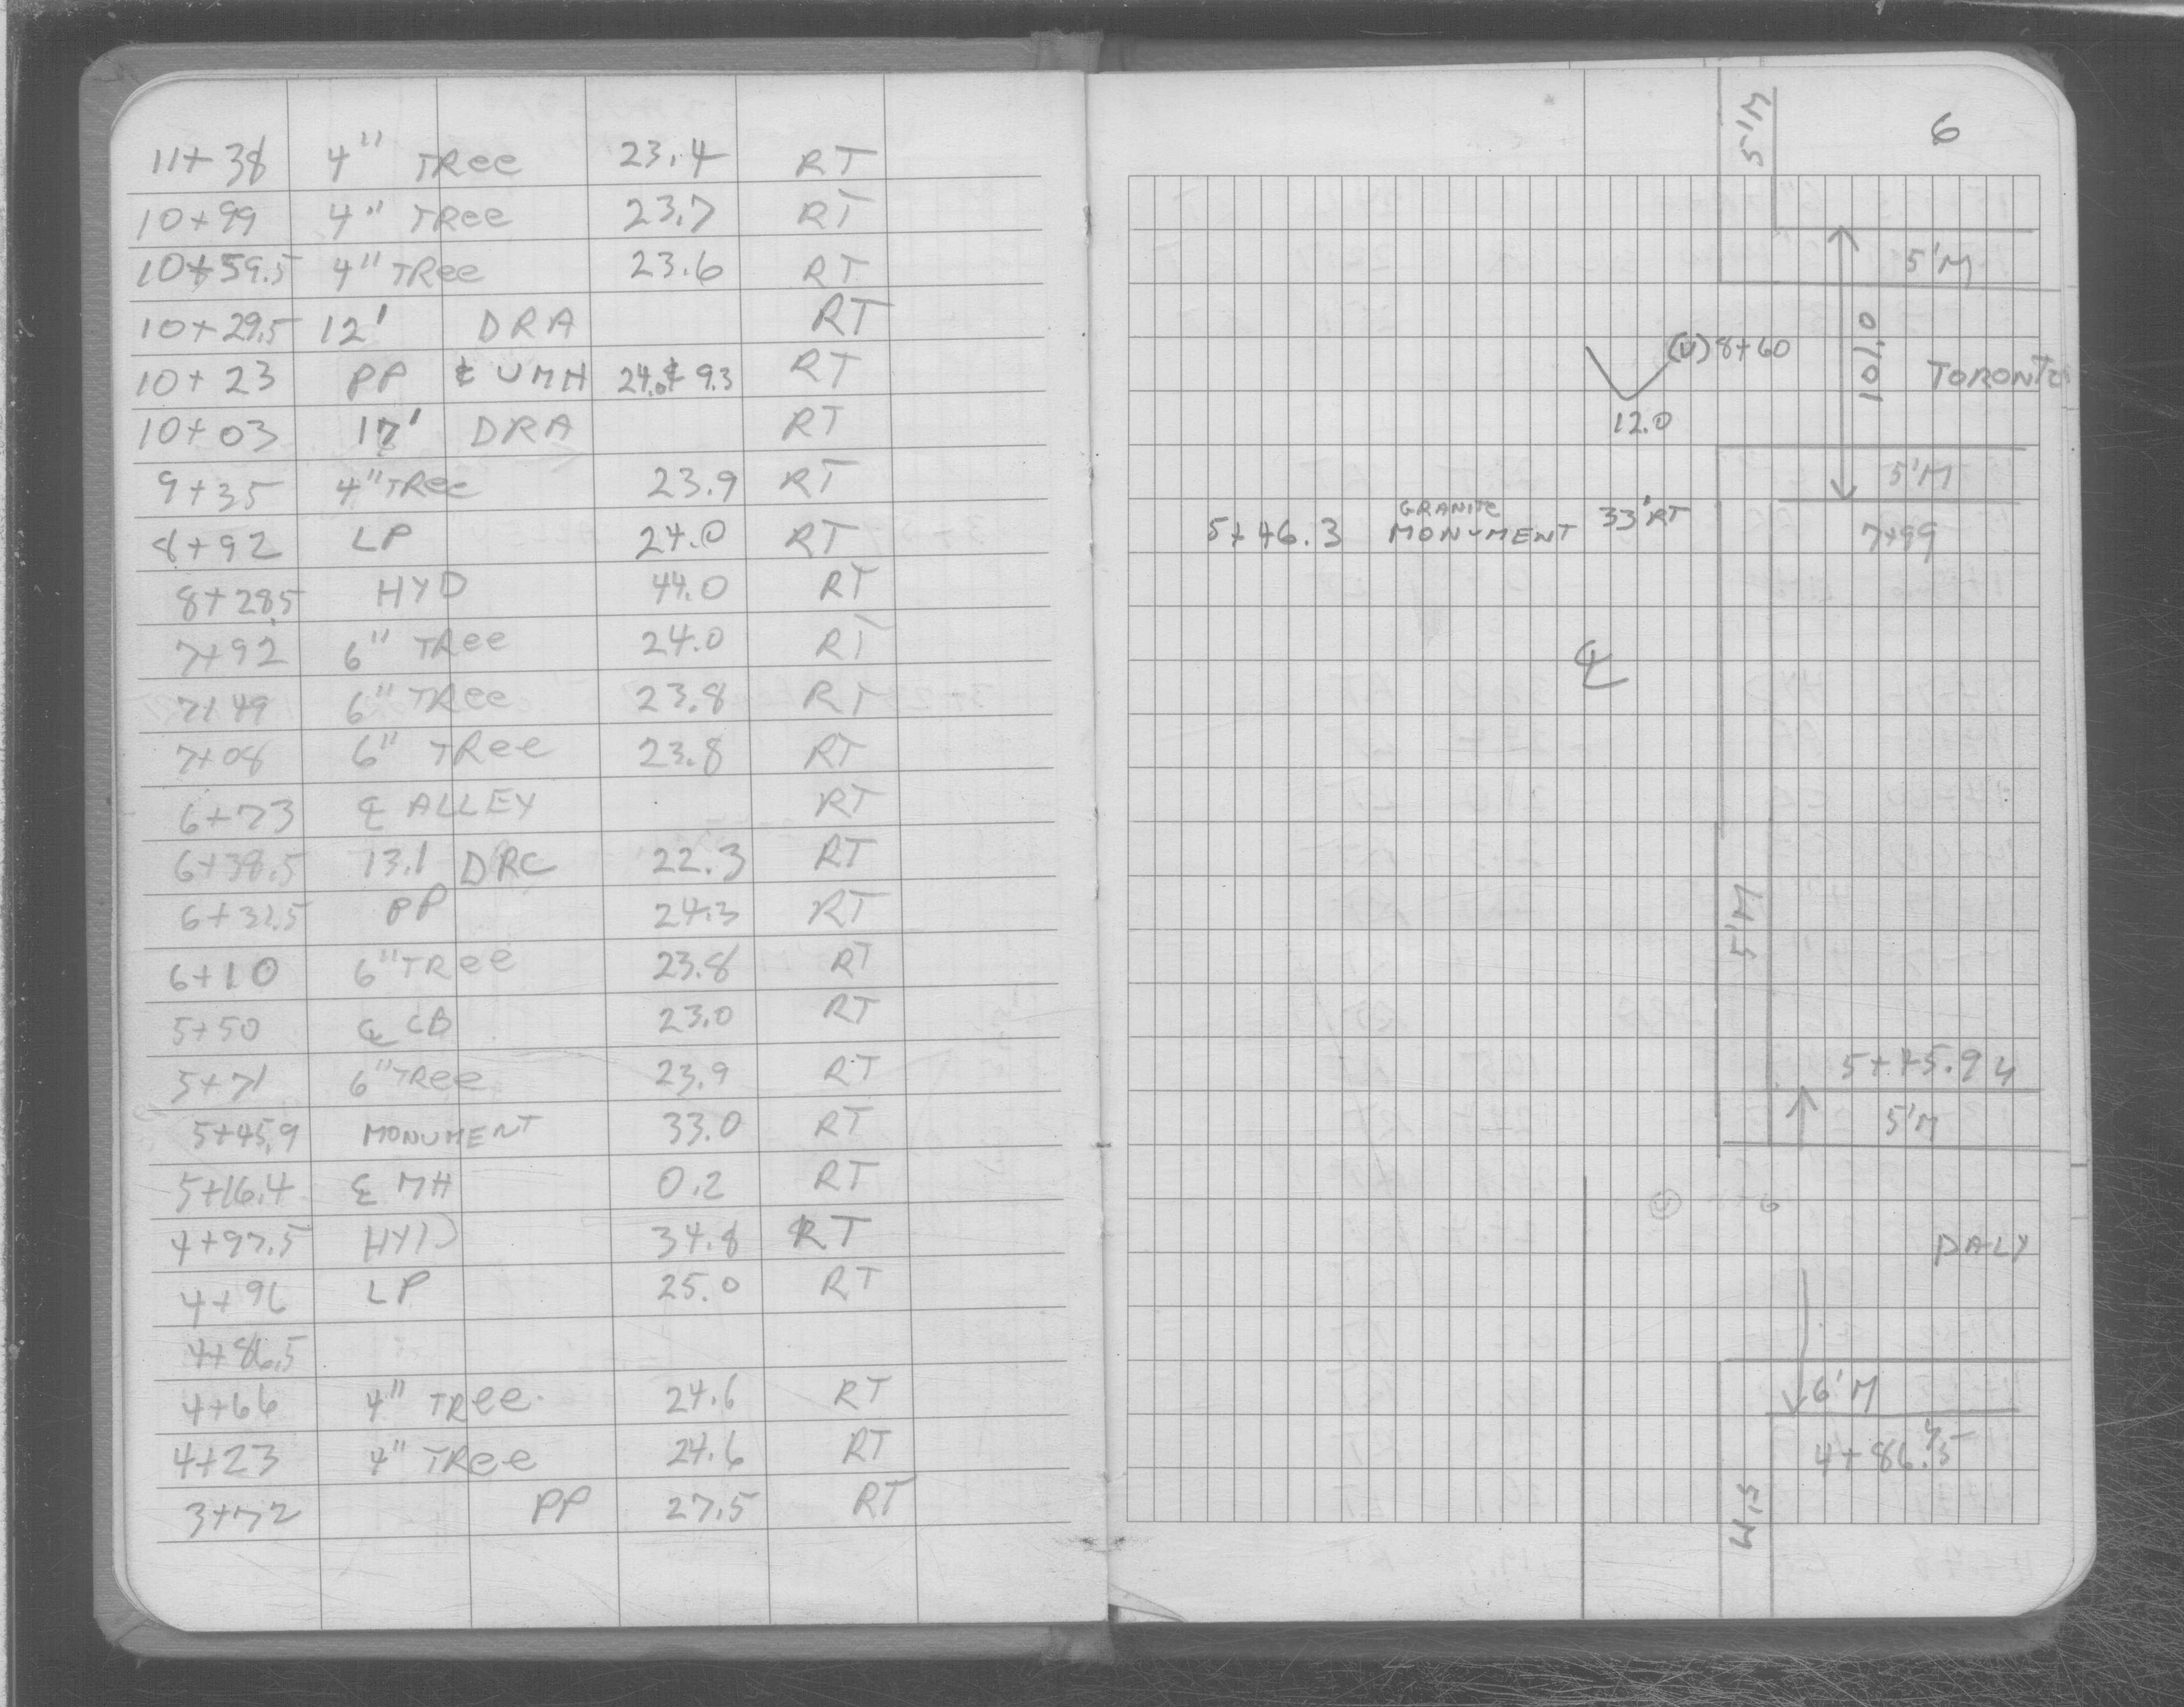 11+38 4" TRee 23.4 RT
10+99 4" TRee 23.7 RT
10+59.5 4" TRee 23.6 RT
10+29.5 12' DRA RT
10+23 PP & UMH 24.0 & 9.3 RT
10+03 17' DRA RT
9+35 4" TRee 23.9 RT
8+92 LP 24.0 RT
8+28.5 HYD 44.0 RT
7+92 6" TRee 24.0 RT
7+49 6" TRee 23.8 RT
7+08 6" TRee 23.8 RT
6+73 ℄ ALLEY RT
6+38.5 13.1 DRC 22.3 RT
6+31.5 PP 24.3 RT
6+10 6" TRee 23.8 RT
5+50 ℄ CB 23.0 RT
5+71 6" TRee 23.9 RT
5+45.9 MONUMENT 33.0 RT
5+16.4 ℄ MH 0.2 RT
4+97.5 HYD 34.8 RT
4+96 LP 25.0 RT
4+86.5
4+66 4" TRee 24.6 RT
4+23 4" TRee 24.6 RT
3+72 PP 27.5 RT
6
5'M
5'M
101.0
(U) 8+60
12.0
TORONTO
5'M
7+99
5+46.3 GRANITE MONUMENT 33' RT
℄
5'M
5+45.94
5'M
DALY
6'M
4+86.5
5'M